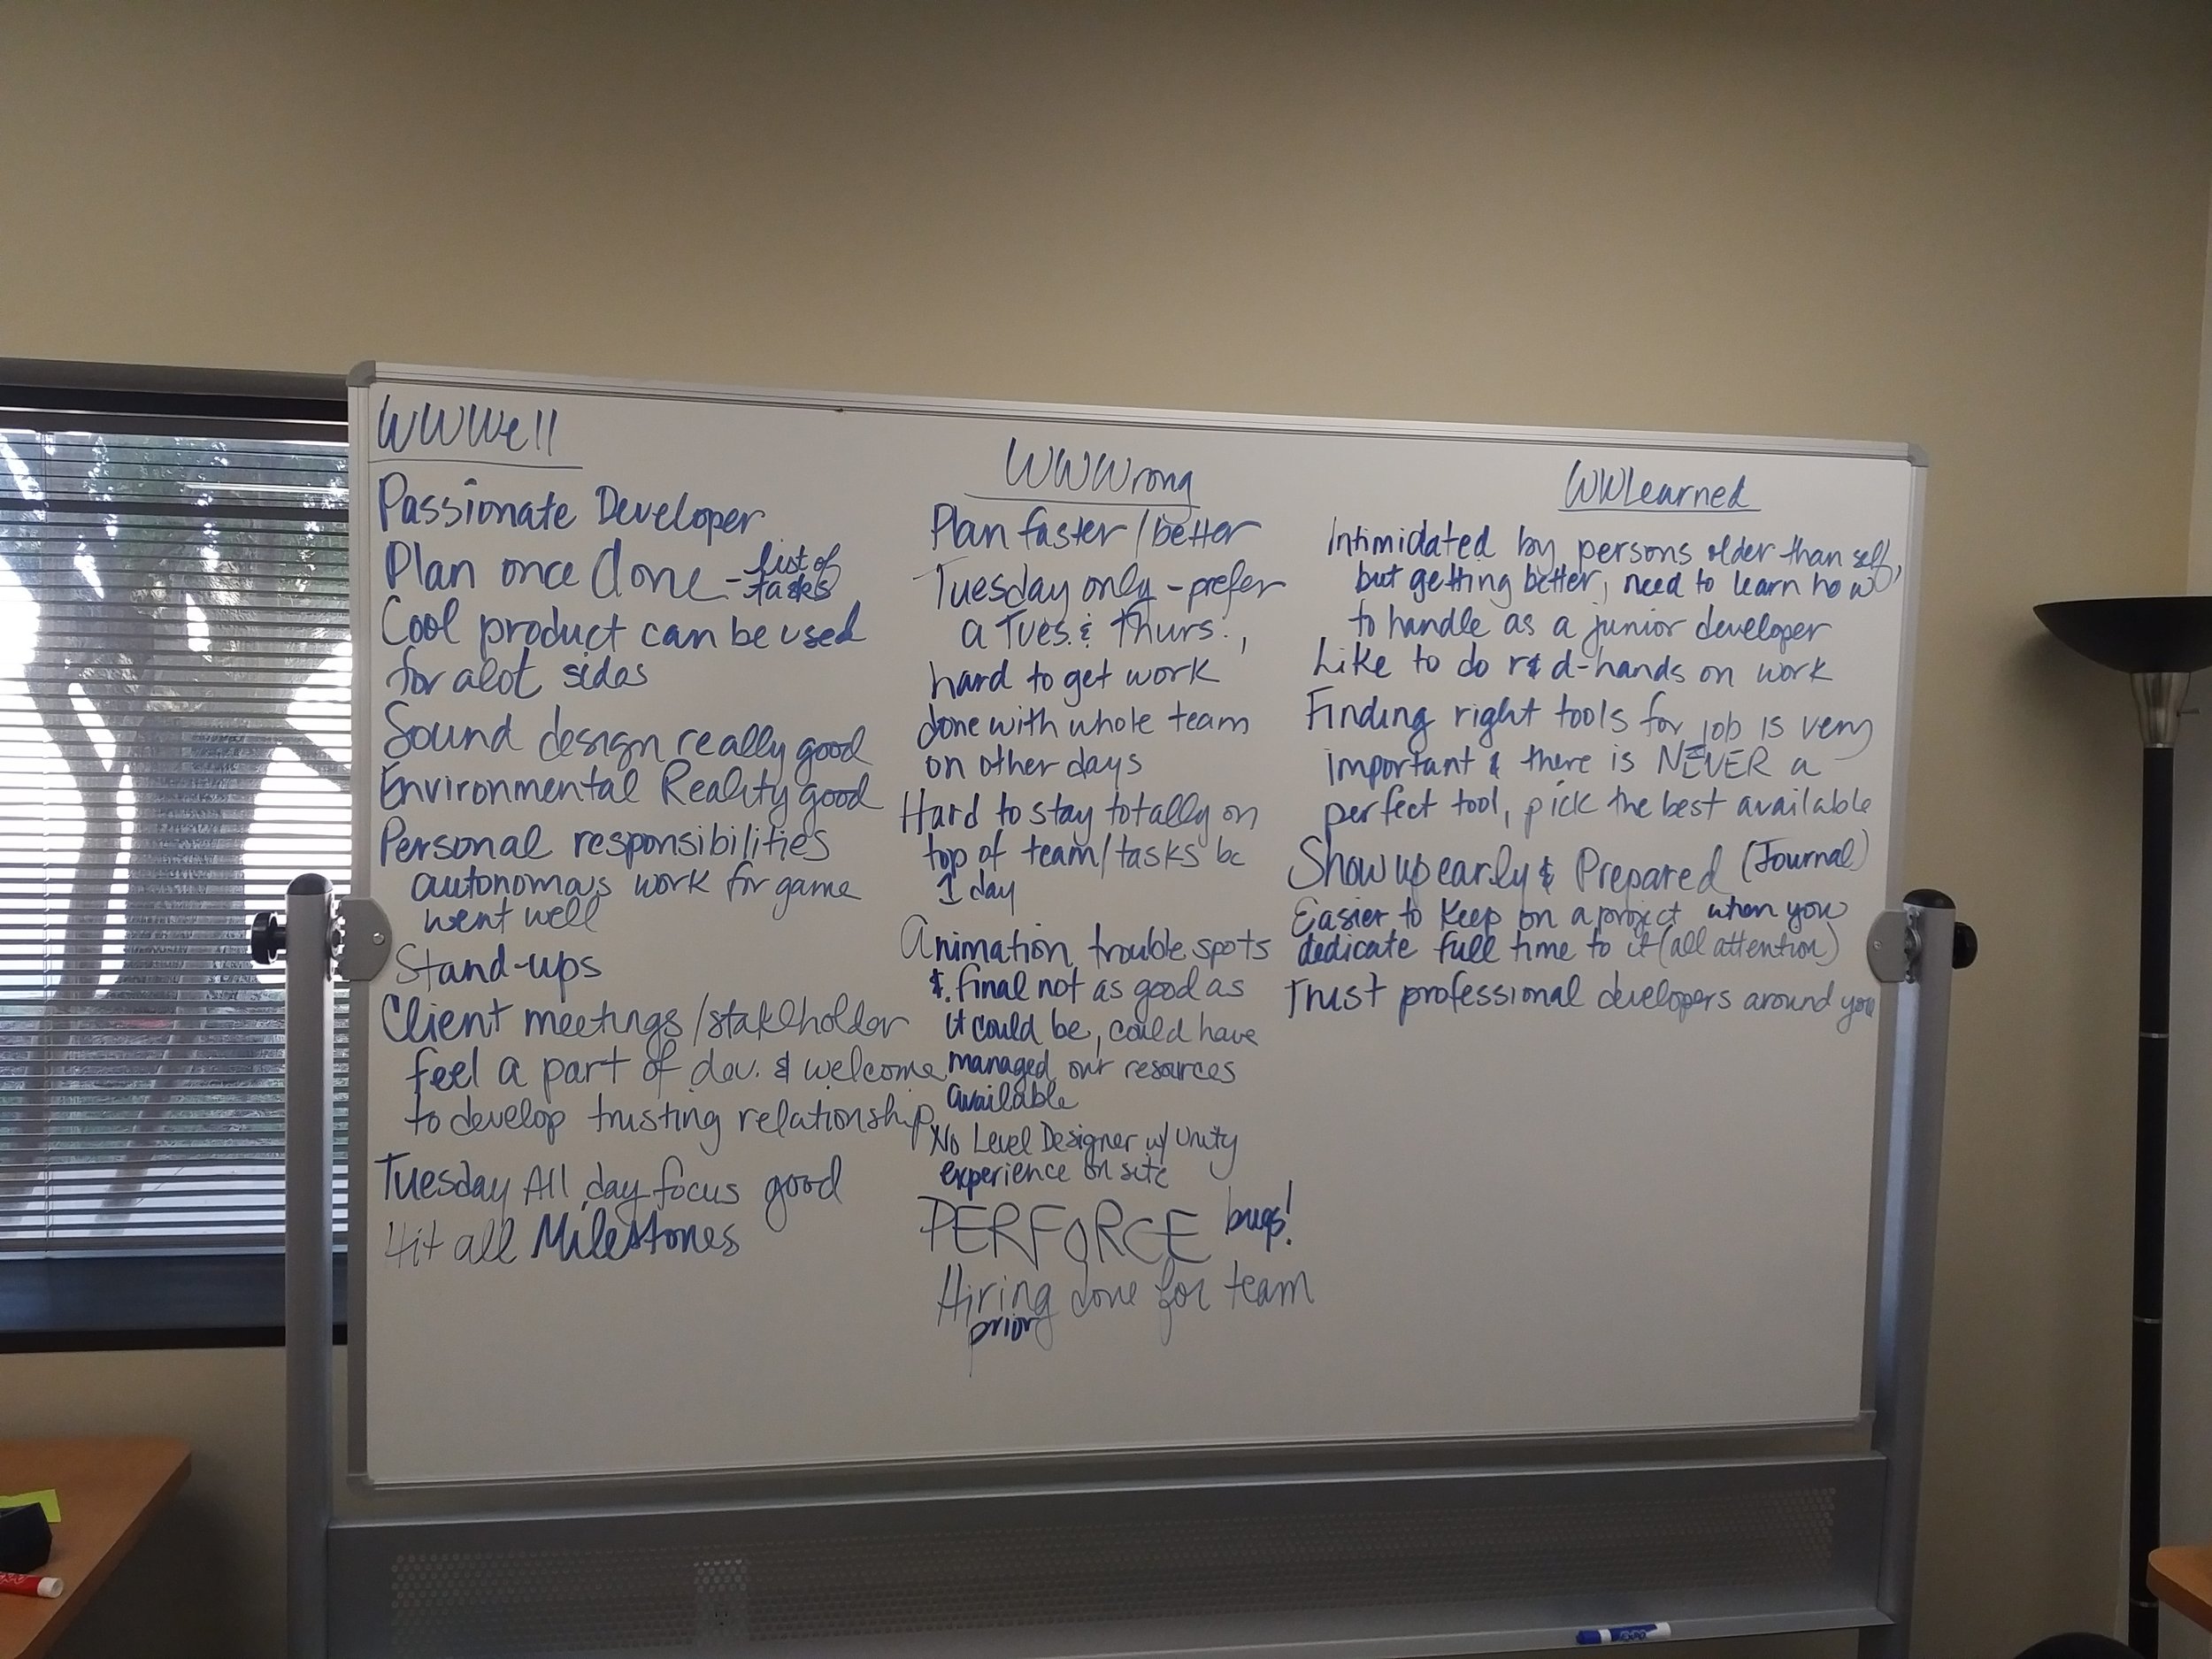 WWWell
Passionate Developer
Plan once done - list of
tasks
Cool product can be used
for alot sides
Sound design really good
Environmental Reality good
Personal responsibilities
autonomous work for game
went well
Stand-ups
Client meetings/stakeholder
feel a part of dev. & welcome
to develop trusting relationship
Tuesday All day focus good
Hit all Milestones
WWWrong
Plan faster/better
Tuesday only - prefer
a Tues. & Thurs.,
hard to get work
done with whole team
on other days
Hard to stay totally on
top of team/tasks bc
1 day
Animation trouble spots
& final not as good as
it could be, could have
managed our resources
available
No Level Designer w/ Unity
experience on site
PERFORCE bugs!
Hiring done for team
prior
WWLearned
Intimidated by persons older than self,
but getting better, need to learn how
to handle as a junior developer
Like to do r&d-hands on work
Finding right tools for job is very
important & there is NEVER a
perfect tool, pick the best available
Show up early & Prepared (Journal)
Easier to keep on a project when you
dedicate full time to it (all attention)
Trust professional developers around you